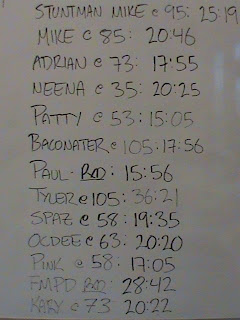 STUNTMAN MIKE @ 95: 25:19
MIKE @ 85: 20:46
ADRIAN @ 73: 17:55
NEENA @ 35: 20:25
PATTY @ 53: 15:05
BACONATER @ 105: 17:56
PAUL 15:56
TYLER @ 105: 36:21
SPAZ @ 58: 19:35
OCDEE @ 63: 20:20
PINK @ 58: 17:05
FMPD 28:42
KARY @ 73: 20:22